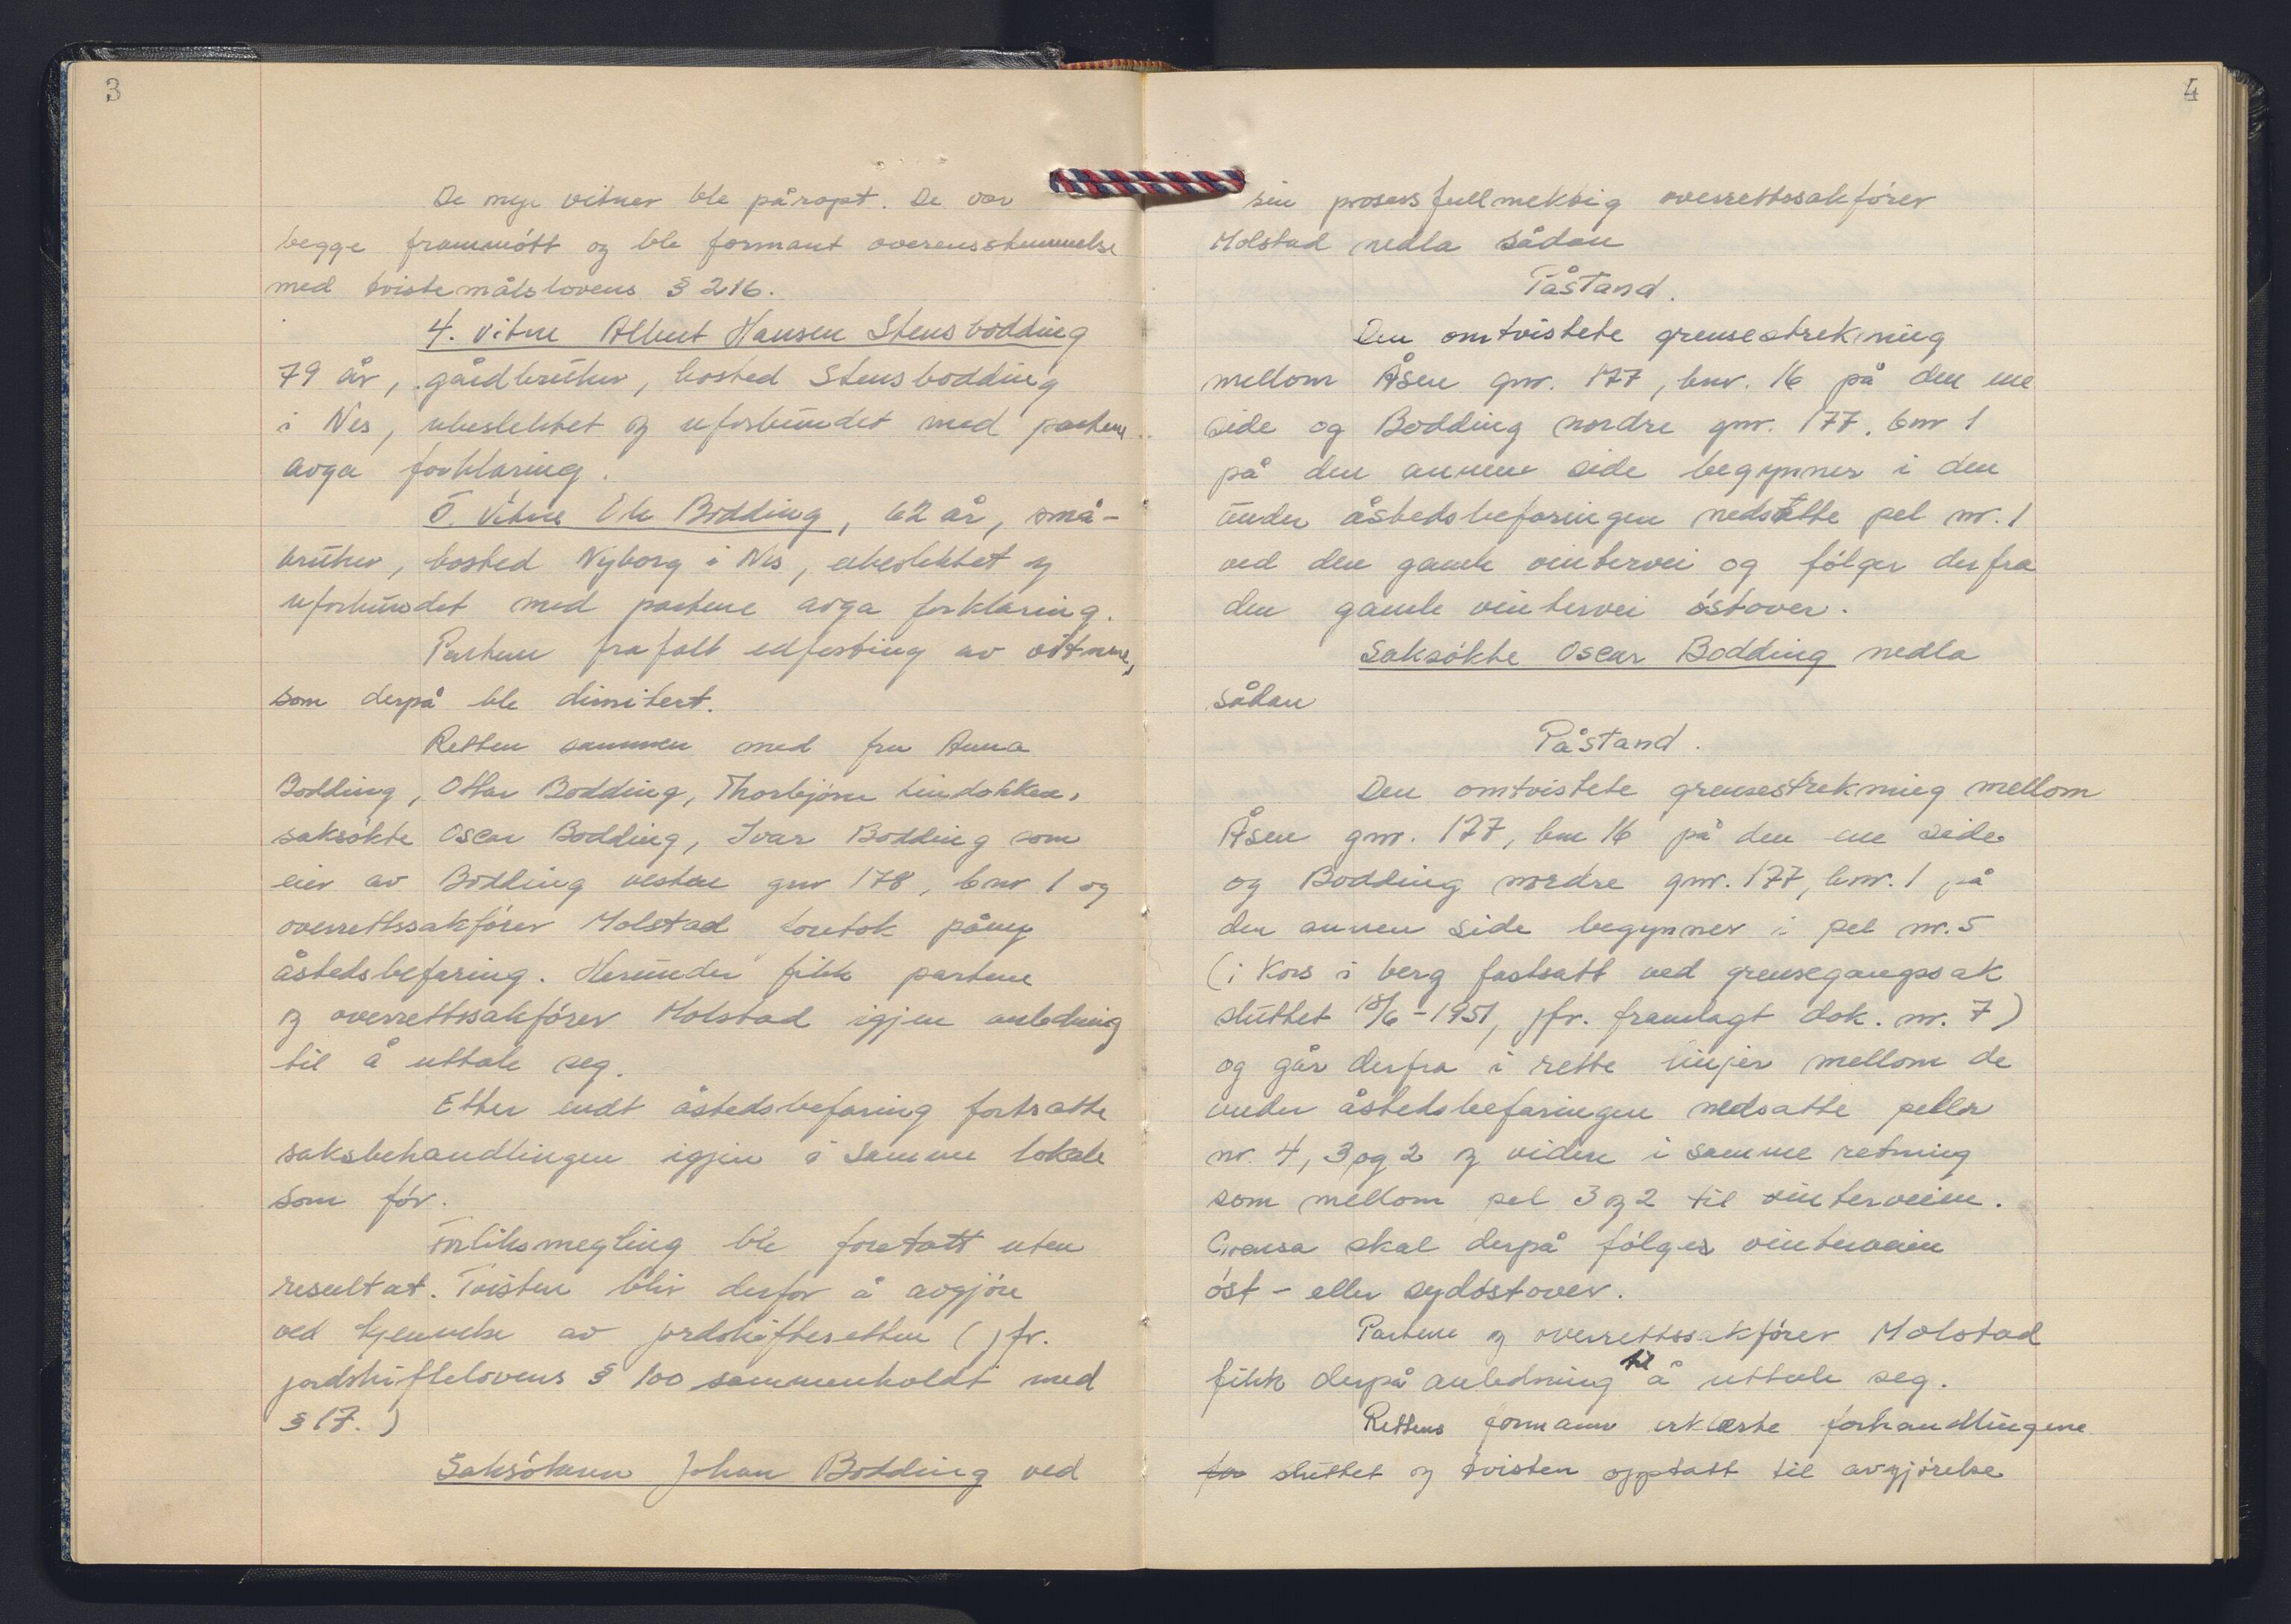 3
De nye vitner ble påropt. De var
begge frammøtt og ble formant overensstemmelse
med tvistemålslovens § 216.
4. vitne Albert Hansen Stensbodding
79 år, gårdbruker, bosted Stensbodding
i Nes, ubeslektet og uforbundet med partene
avga forklaring.
5. vitne Ole Bodding, 62 år, små-
bruker, bosted Nyborg i Nes, ubeslektet og
uforbundet med partene avga forklaring.
Partene frafalt edfesting av vitnene,
som derpå ble dimitert.
Retten sammen med fru Anna
Bodding, Ottar Bodding, Thorbjørn Lindakken,
saksøkte Oscar Bodding, Ivar Bodding som
eier av Bodding vestre gnr 178, bnr 1 og
overrettssakfører Molstad foretok påny
åstedsbefaring. Herunder fikk partene
og overrettssakfører Molstad igjen anledning
til å uttale seg.
Etter endt åstedsbefaring fortsatte
saksbehandlingen igjen i samme lokale
som før.
Forliksmegling ble foretatt uten
resultat. Tvisten blir derfor å avgjøre
ved kjennelse av jordskifteretten (jfr.
jordskiftelovens § 100 sammenholdt med
§ 17.)
Saksøkeren Johan Bodding ved
4
sin prosessfullmektig overrettssakfører
Molstad nedla sådan
Påstand.
Den omtvistete grensestrekning
mellom Åsen gnr. 177, bnr. 16 på den ene
side og Bodding nordre gnr. 177, bnr 1
på den annen side begynner i den
under åstedsbefaringen nedsatte pel nr. 1
ved den gamle vintervei og følger derfra
den gamle vintervei østover.
Saksøkte Oscar Bodding nedla
sådan
Påstand.
Den omtvistete grensestrekning mellom
Åsen gnr. 177, bnr 16 på den ene side
og Bodding nordre gnr. 177, bnr. 1 på
den annen side begynner i pel nr. 5
(i kors i berg fastsatt ved grensegangssak
sluttet /6-1951, jfr. framlagt dok. nr. 7)
og går derfra i rette linjer mellom de
under åstedsbefaringen nedsatte peler
nr. 4, 3 og 2 og videre i samme retning
som mellom pel 3 og 2 til vinterveien.
Grensa skal derpå følges vinterveien
øst- eller sydøstover.
Partene og overrettssakfører Molstad
fikk derpå anledning til å uttale seg.
Rettens formann erklærte forhandlingene
for sluttet og tvisten opptatt til avgjørelse